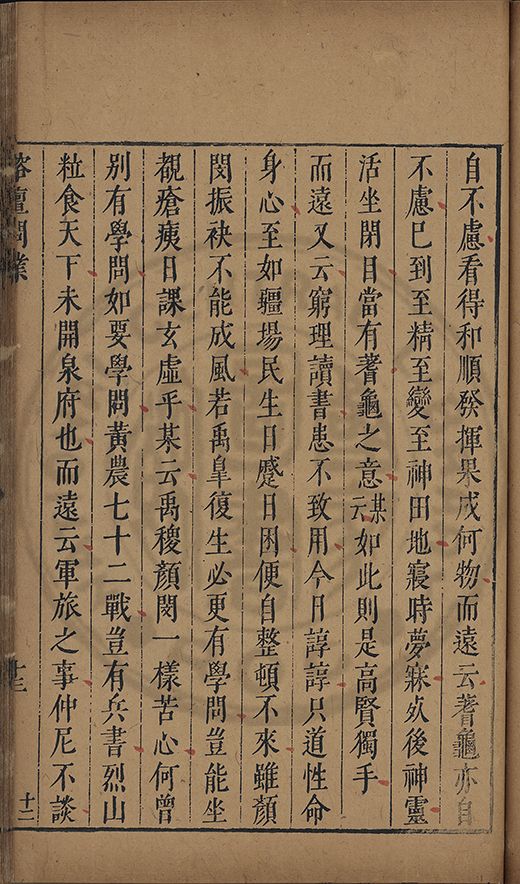 自不慮看得和順發揮果成何物而遠云蓍龜亦自
不慮巳到至精至變至神田地寢時夢寐死後神靈
活坐閉目當有蓍龜之意某云如此則是高賢獨手
而遠又云窮理讀書患不致用今日諄諄只道性命
身心至如疆場民生日蹙日困便自整頓不來雖顏
閔振袂不能成風若禹臯復生必更有學問豈能坐
覩瘡痍日課玄虛乎某云禹稷顏閔一樣苦心何曾
別有學問如要學問黃農七十二戰豈有兵書烈山
粒食天下未開泉府也而遠云軍旅之事仲尼不談
榕壇問業
十二